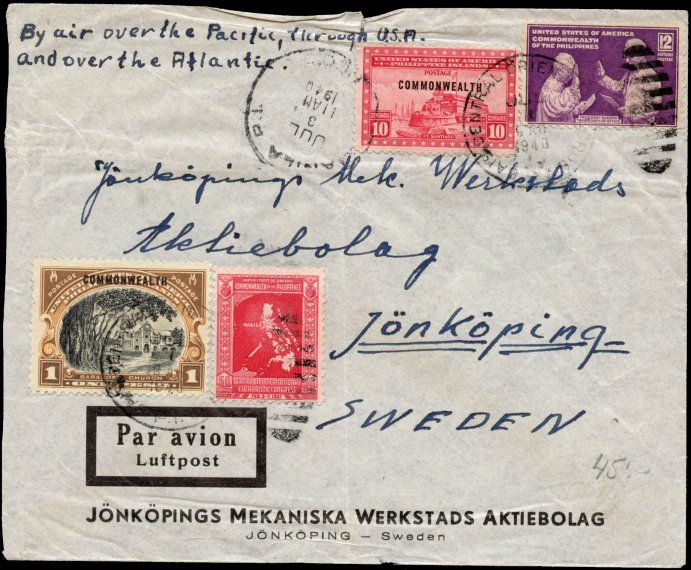 By air over the Pacific, through U.S.A.
and over the Atlantic.
UNITED STATES OF AMERICA
PHILIPPINE ISLANDS
POSTAGE
COMMONWEALTH
CENTAVOS CENTAVOS
10 FT. SANTIAGO 10
UNITED STATES OF AMERICA
COMMONWEALTH
OF THE PHILIPPINES
12
CENTAVOS
POSTAGE
MANILA P.I.
JUL
3
11 AM
1940
1940
Jönköpings Mek. Werkstads
Aktiebolag
Jönköping
SWEDEN
POSTAGE POSTAGE
COMMONWEALTH
BARASOAIN CHURCH
1 ONE PESO 1
UNITED STATES OF AMERICA
COMMONWEALTH OF THE PHILIPPINES
MANILA
EUCHARISTIC CONGRESS
FEB. 3-7, 1937
Par avion
Luftpost
45:-
JÖNKÖPINGS MEKANISKA WERKSTADS AKTIEBOLAG
JÖNKÖPING – Sweden